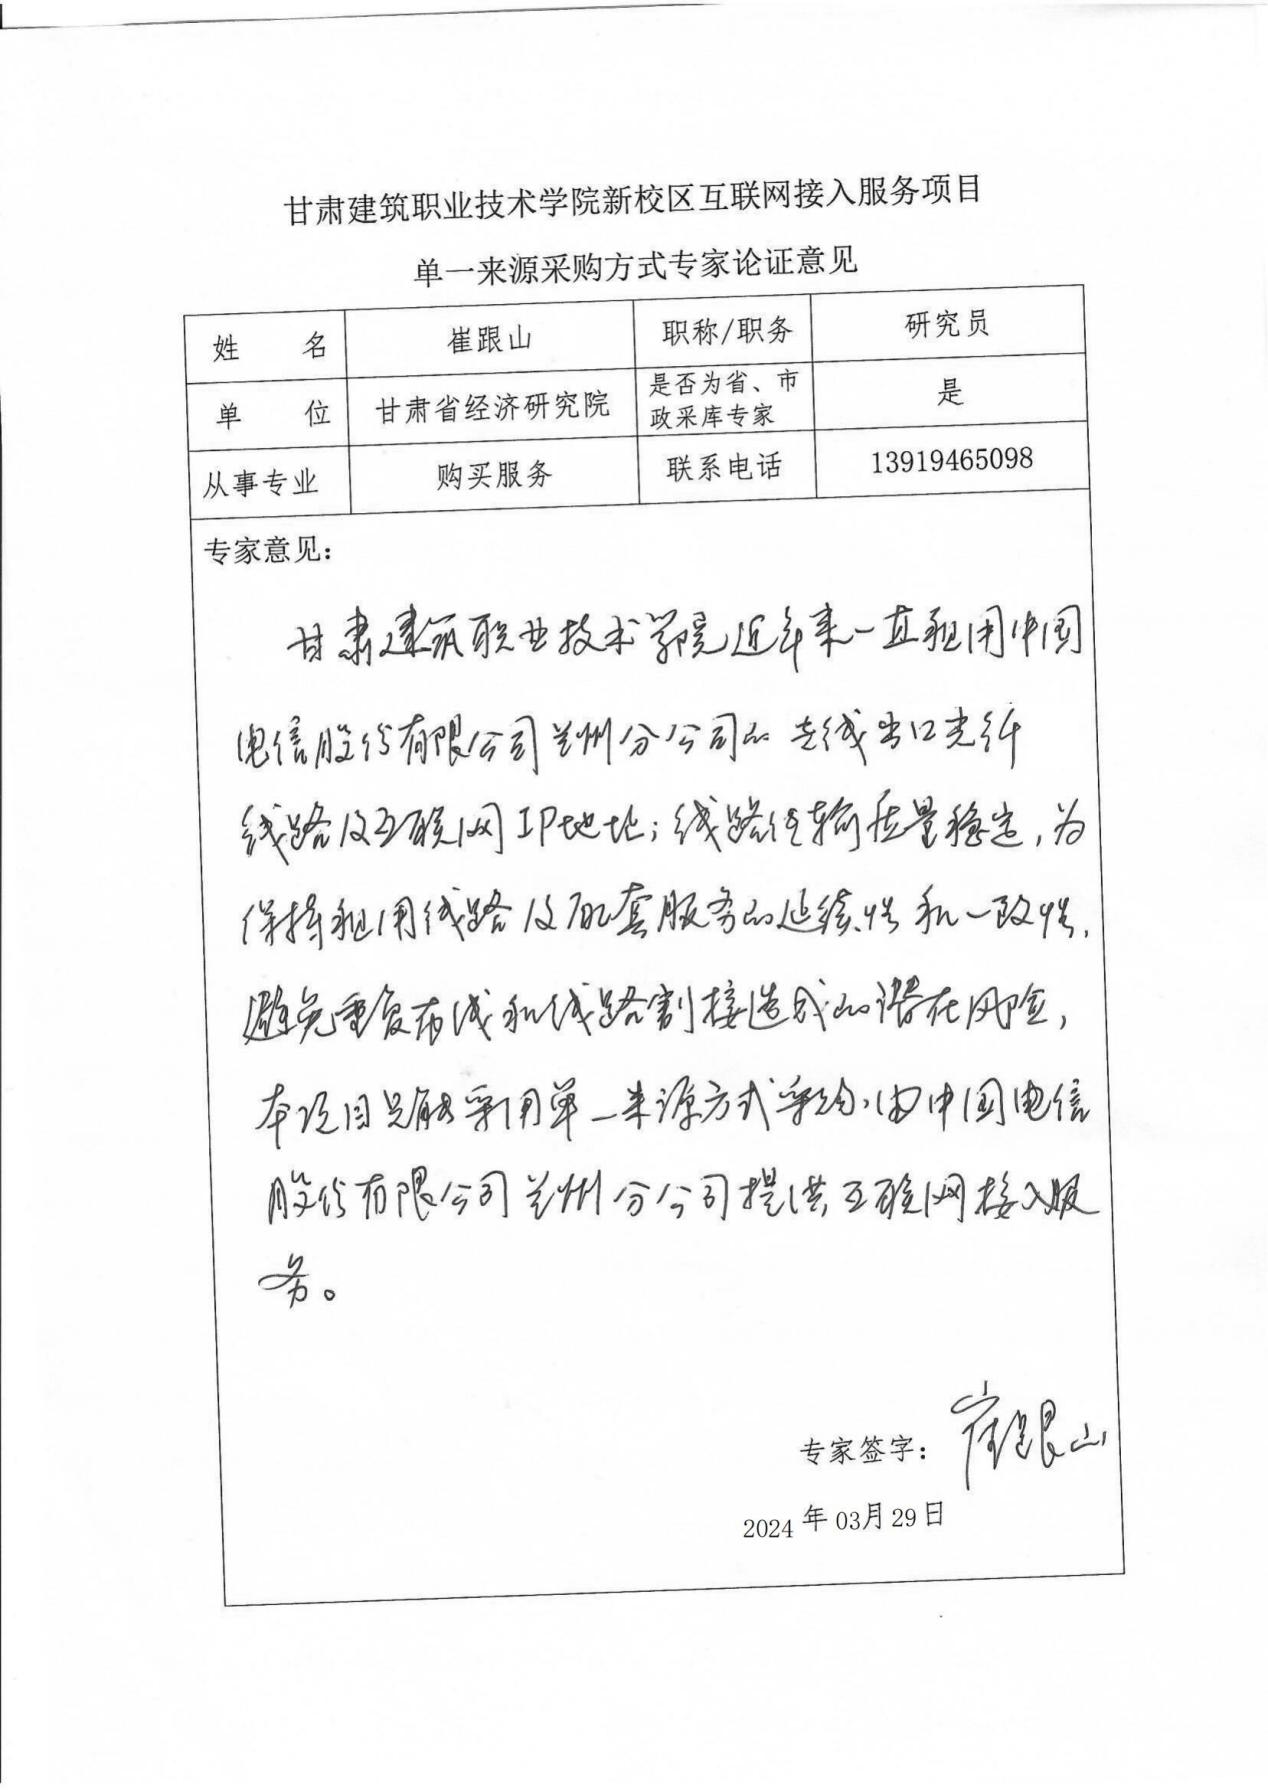 甘肃建筑职业技术学院新校区互联网接入服务项目
单一来源采购方式专家论证意见
姓 名 崔跟山 职称/职务 研究员
单 位 甘肃省经济研究院 是否为省、市政采库专家 是
从事专业 购买服务 联系电话 13919465098
专家意见：
甘肃建筑职业技术学院近年来一直租用中国
电信股份有限公司兰州分公司的 出口光纤
线路及互联网IP地址；线路传输质量稳定，为
保持租用线路及配套服务的延续性和一致性，
避免重复布线和线路割接造成的潜在风险，
本项目只能采用单一来源方式采购，由中国电信
股份有限公司兰州分公司提供互联网接入服
务。
专家签字：崔跟山
2024年03月29日